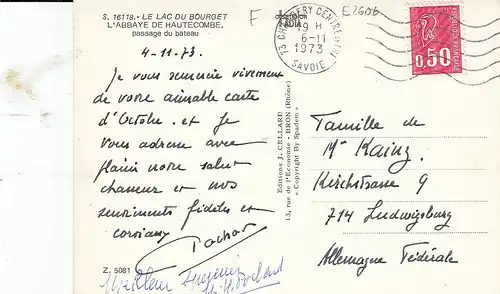 S. 16118. - LE LAC DU BOURGET
L'ABBAYE DE HAUTECOMBE,
passage du bateau
F
E2606
73 CHAMBERY CENTRE
19 H
6-11
1973
SAVOIE
0,50
4-11-73.
Je vous remercie vivement
de votre aimable carte
d'Octobre. et je
vous adresse avec
plaisir notre salut
chasseur et nos
sentiments fidèles et
Pochat
Z. 5081
Editions J. CELLARD
13, rue de l'Economie - BRON (Rhône)
« Copyright By Spadem »
Famille de
Mr Kainz
Kirchstrasse 9
714 Ludwigsburg
Allemagne Fédérale